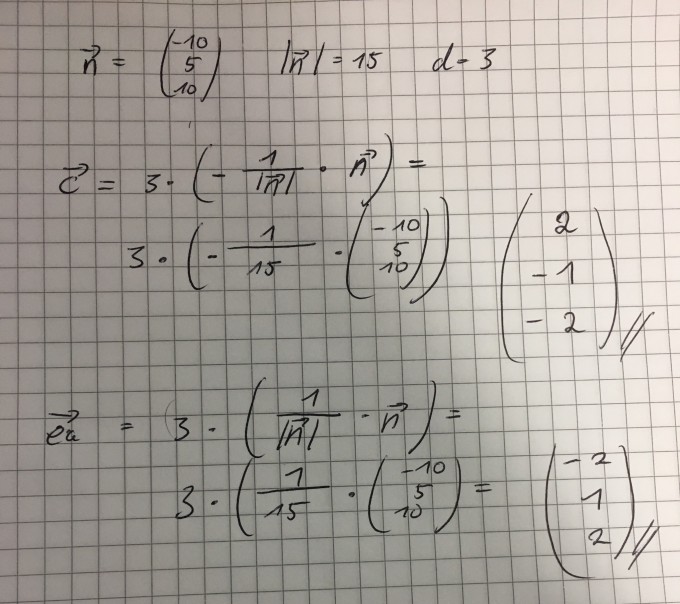 n⃗ = (-10 5 10) |n⃗| = 15 d = 3
c⃗ = 3 · (- 1/|n⃗| · n⃗) =
3 · (- 1/15 · (-10 5 10)) (2 -1 -2) //
e⃗a = 3 · (1/|n⃗| · n⃗) =
3 · (1/15 · (-10 5 10) = (-2 1 2) //